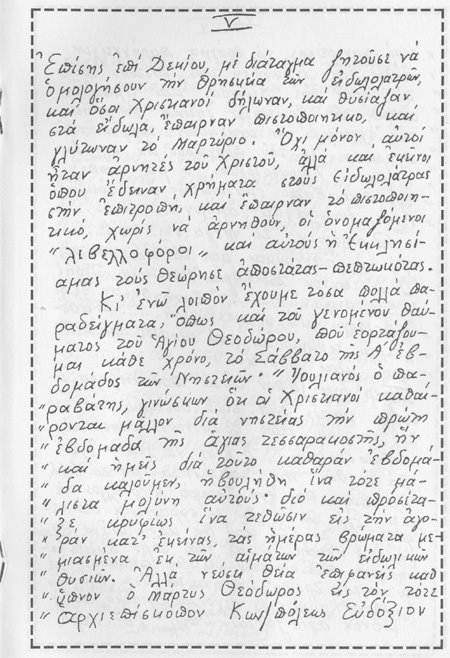 V
Ἐπίσης ἐπί Δεκίου, μέ διάταγμα ζητοῦσε νά
ὁμολογήσουν τήν θρησκεία τῶν εἰδωλολατρῶν,
καί ὅσοι Χριστιανοί δήλωναν, καί θυσίαζαν
στά εἴδωλα, ἔπαιρναν πιστοποιητικό, καί
γλύτωναν τό Μαρτύριο. Ὄχι μόνον αὐτοί
ἦταν ἀρνητές τοῦ Χριστοῦ, ἀλλά καί ἐκεῖνοι
ὁπου ἔδιναν χρήματα στούς Εἰδωλολάτρας
στήν ἐπιτροπή, καί ἔπαιρναν τό πιστοποιη-
τικό, χωρίς νά ἀρνηθοῦν, οἱ ὀνομαζόμενοι
"λιβελλοφόροι" καί αὐτούς ἡ Ἐκκλησί-
α μας τούς θεώρησε ἀποστάτας-πεπτωκότας.
Κι' ἐνῶ λοιπόν ἔχουμε τόσα πολλά πα-
ραδείγματα, ὅπως καί τοῦ γενομένου θαύ-
ματος τοῦ Ἁγίου Θεοδώρου, πού ἑορτάζου-
με κάθε χρόνο, τό Σάββατο τῆς Α' ἑβ-
δομάδος τῶν Νηστειῶν. "Ἰουλιανός ὁ πα-
"ραβάτης, γινώσκων ὅτι οἱ Χριστιανοί καθαί-
"ρονται μᾶλλον διά νηστείας τήν πρώτη
"ἑβδομάδα τῆς ἁγίας τεσσαρακοστῆς, ἥν
"καί ἡμεῖς διά τοῦτο καθαράν ἑβδομά-
"δα καλοῦμεν, ἠβουλήθη ἵνα τότε μά-
"λιστα μολύνῃ αὐτούς· διό καί προσέτα-
"ξε κρυφίως ἵνα τεθῶσιν εἰς τήν ἀγο-
"ράν κατ' ἐκείνας, τάς ἡμέρας βρώματα με-
"μιασμένα ἐκ τῶν αἱμάτων τῶν εἰδωλικῶν
"θυσιῶν. Ἀλλά νεύσει θεία ἐπιφανείς καθ'
"ὕπνον ὁ Μάρτυς Θεόδωρος εἰς τόν τότε
"ἀρχιεπίσκοπον Κων/πόλεως Εὐδόξιον